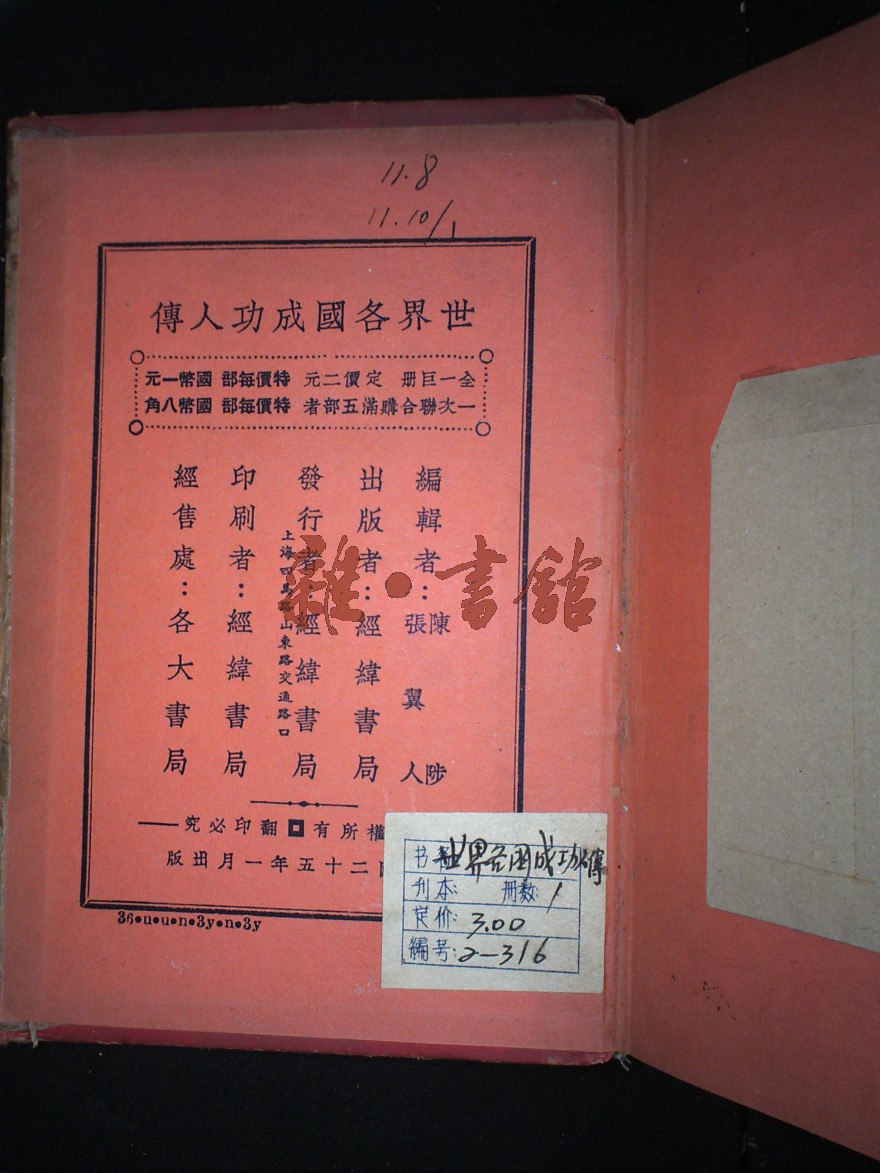 11.8
11.10/1
世界各國成功人傳
全一巨册 定價二元 特價每部 國幣一元
一次聯合購滿五部者 特價每部 國幣八角
編輯者：陳陟 張翼人
出版者：經緯書局
發行者：經緯書局
上海四馬路山東路交通路口
印刷者：經緯書局
經售處：各大書局
權所有 翻印必究
二十五年一月出版
36•u•u•n•3y•n•3y
雜·書館
书 世界各国成功 傳
刊本: 册数: 1
定价: 3.00
编号: 2-316